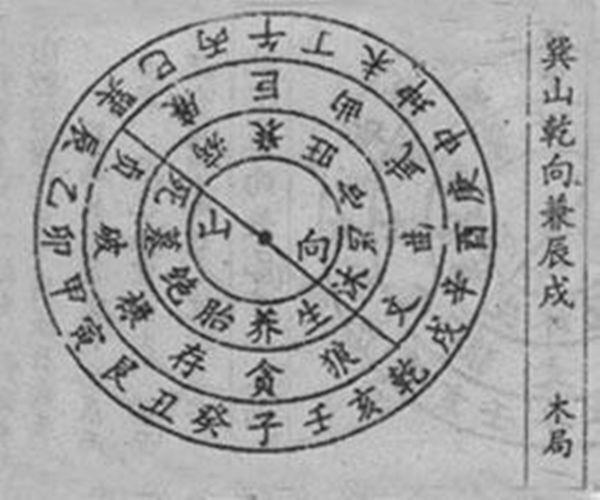 巽山乾向兼辰戌
木局
午丁未坤申庚酉辛戌乾亥壬子癸丑艮寅甲卯乙辰巽巳丙
巨 曲 武 曲 文 狼 贪 存 禄 破 贞 廉
衰旺官冠沐生养胎绝墓死病
山向